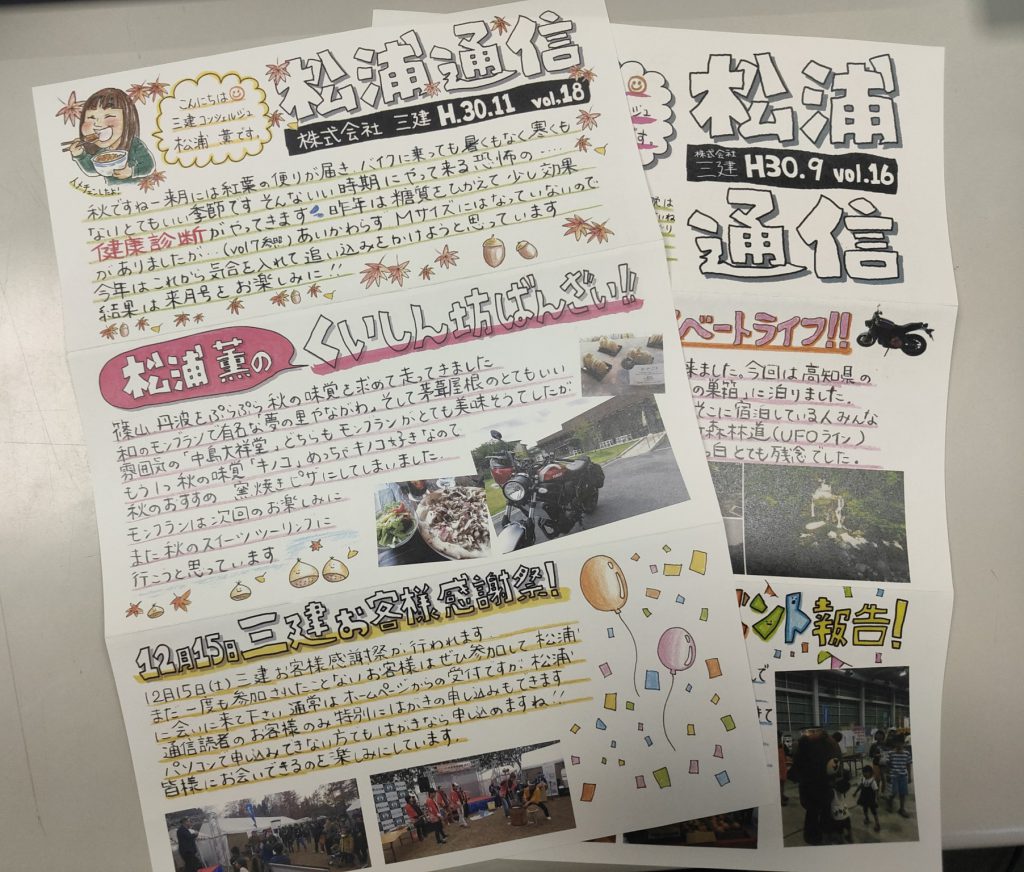 こんにちは
三建コンシェルジュ
松浦 薫です。
松浦通信
株式会社 三建 H.30.11 vol,18
秋ですねー来月には紅葉の便りが届き、バイクに乗っても暑くもなく寒くも
ないとてもいい季節です そんないい時期にやって来る恐怖の.....
健康診断がやってきます 昨年は糖質をひかえて少し効果
がありましたが...(vol7参照)あいかわらずMサイズにはなっていないので
今年はこれから気合を入れて追い込みをかけようと思っています
結果は来月号をお楽しみに!!
松浦 薫の くいしん坊ばんざい!!
篠山、丹波をぷらぷら秋の味覚を求めて走ってきました
和のモンブランで有名な夢の里やながわ、そして茅葺屋根のとてもいい
雰囲気の「中島大祥堂」どちらもモンブランがとても美味そうでしたが
もう1つ秋の味覚「キノコ」めっちゃキノコ好きなので
秋のおすすめ 窯焼きピザにしてしまいました。
モンブランは次回のお楽しみに
また秋のスイーツツーリングに
行こうと思っています
12月15日 三建お客様感謝祭!
12月15日(土)三建お客様感謝祭が行われます。
まだ一度も参加されたことないお客様はぜひ参加して松浦
に会いに来て下さい 通常はホームページからの受付ですが 松浦
通信読者のお客様のみ特別にはがきの申し込みもできます
パソコンで申し込みできない方でもはがきなら申し込めますね!!
皆様にお会いできるのを楽しみにしています。
松浦
株式会社
三建 H30.9 vol.16
通信
ベートライフ!!
来ました。今回は高知県の
の巣箱」に泊りました。
そこに宿泊している人みんな
森林道(UFOライン)
っ白 とても残念でした。
ベント報告!